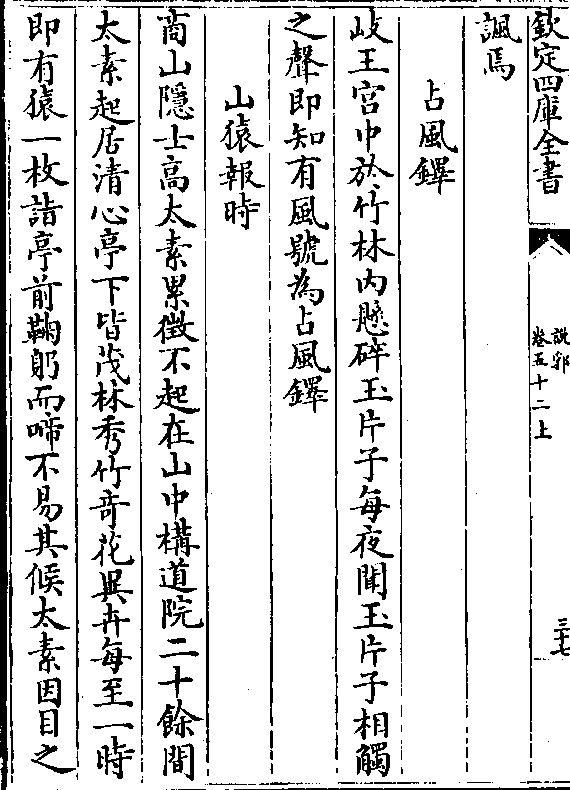 欽定四庫全書
說郛
卷五十二上
三十七
諷焉
占風鐸
岐王宫中於竹林内懸碎玉片子每夜聞玉片子相觸
之聲即知有風號為占風鐸
山猿報時
商山隱士高太素累徵不起在山中構道院二十餘間
太素起居清心亭下皆茂林秀竹竒花異卉每至一時
即有猿一枚詣亭前鞠躬而啼不易其候太素因目之